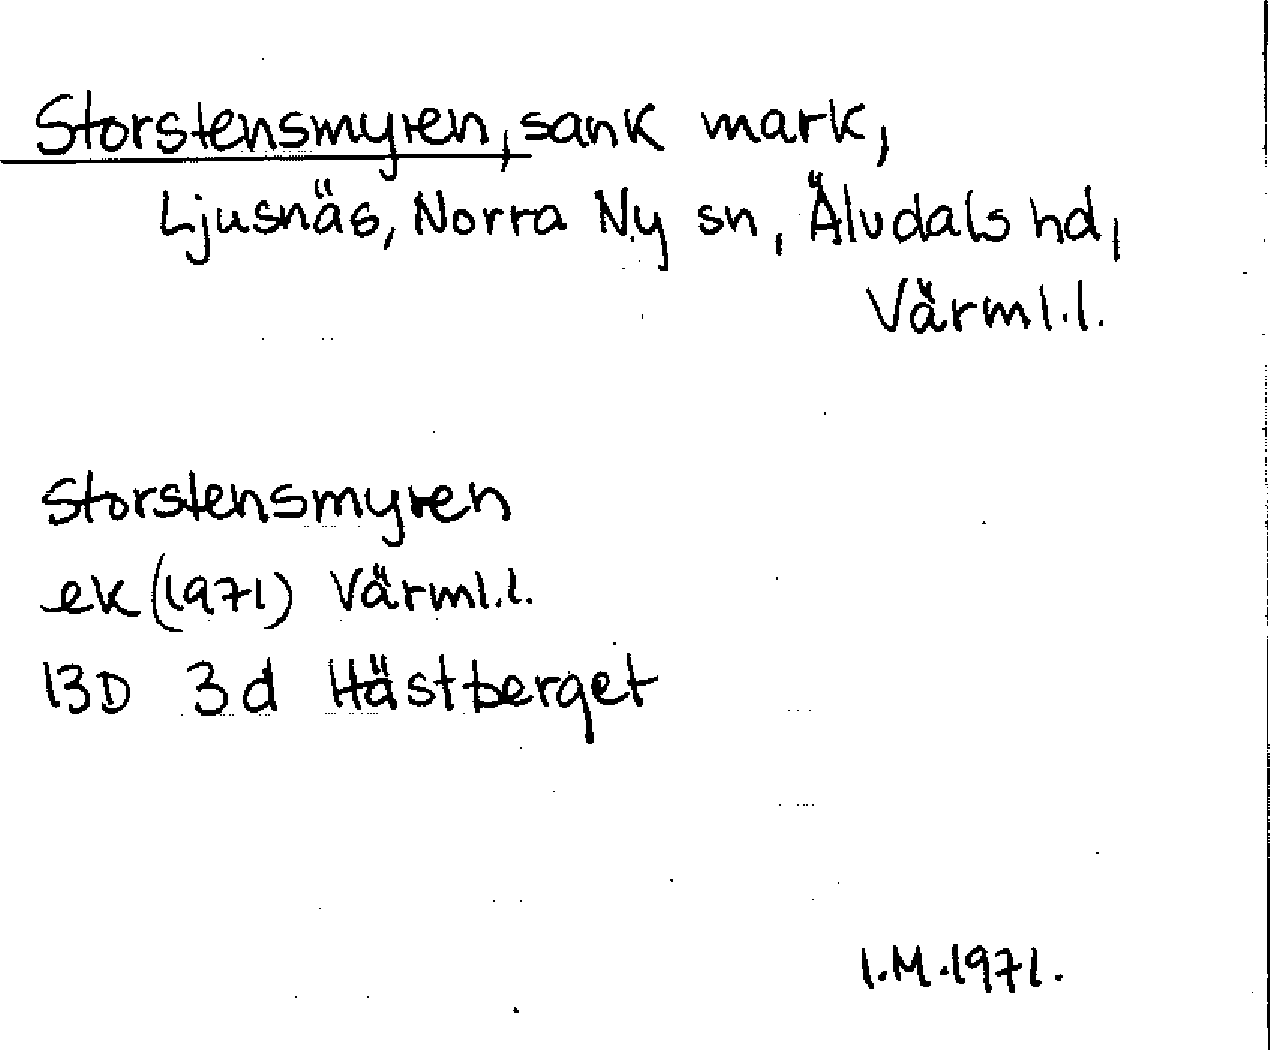 Storstensmyren, sank mark,
Ljusnäs, Norra Ny sn, Älvdals hd,
Värml.l.
Storstensmyren
ek (1971) Värml.l.
13D 3d Hästberget
I.M.1971.